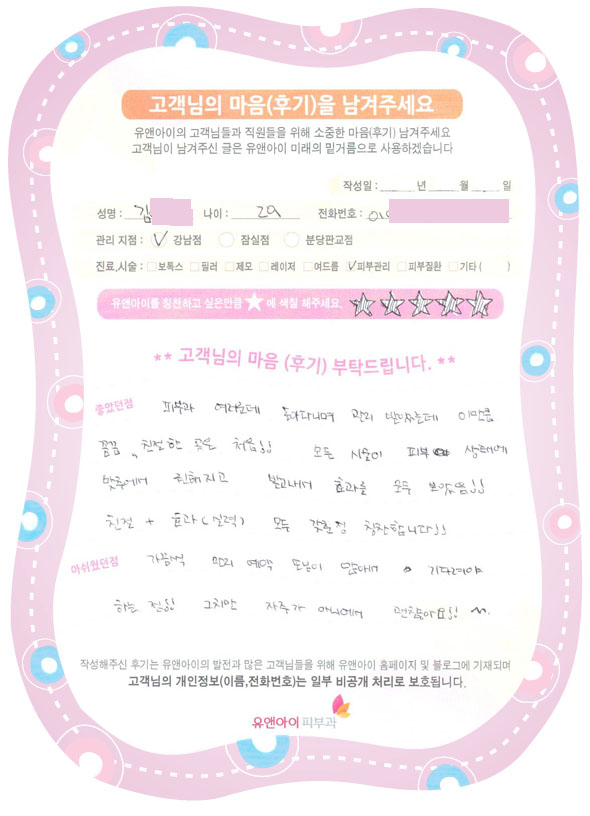 고객님의 마음(후기)을 남겨주세요
유앤아이의 고객님들과 직원들을 위해 소중한 마음(후기) 남겨주세요
고객님이 남겨주신 글은 유앤아이 미래의 밑거름으로 사용하겠습니다
작성일 : 년 월 일
성명 : 김 나이 : 29 전화번호 : 010
관리 지점 : 강남점 잠실점 분당판교점
진료,시술 : 보톡스 필러 제모 레이저 여드름 피부관리 피부질환 기타 ( )
유앤아이를 칭찬하고 싶은만큼 ★ 에 색칠 해주세요
** 고객님의 마음 (후기) 부탁드립니다. **
좋았던점 피부과 여러군데 돌아다니며 관리 받았는데 이만큼
꼼꼼, 친절한 곳은 처음!! 모든 시술이 피부 상태에
맞추어서 진행되고 받고나서 효과를 모두 보았음!!
친절 + 효과(실력) 모두 갖춘점 칭찬합니다!!
아쉬웠던점 가끔씩 관리 예약 손님이 많아서 기다려야
하는 점!! 그치만 자주가 아니어서 괜찮아요!! ^^.
작성해주신 후기는 유앤아이의 발전과 많은 고객님들을 위해 유앤아이 홈페이지 및 블로그에 기재되며
고객님의 개인정보(이름,전화번호)는 일부 비공개 처리로 보호됩니다.
유앤아이 피부과